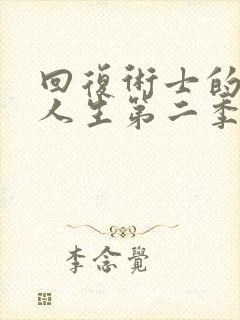 回復術士的
人生第二季
李念覺